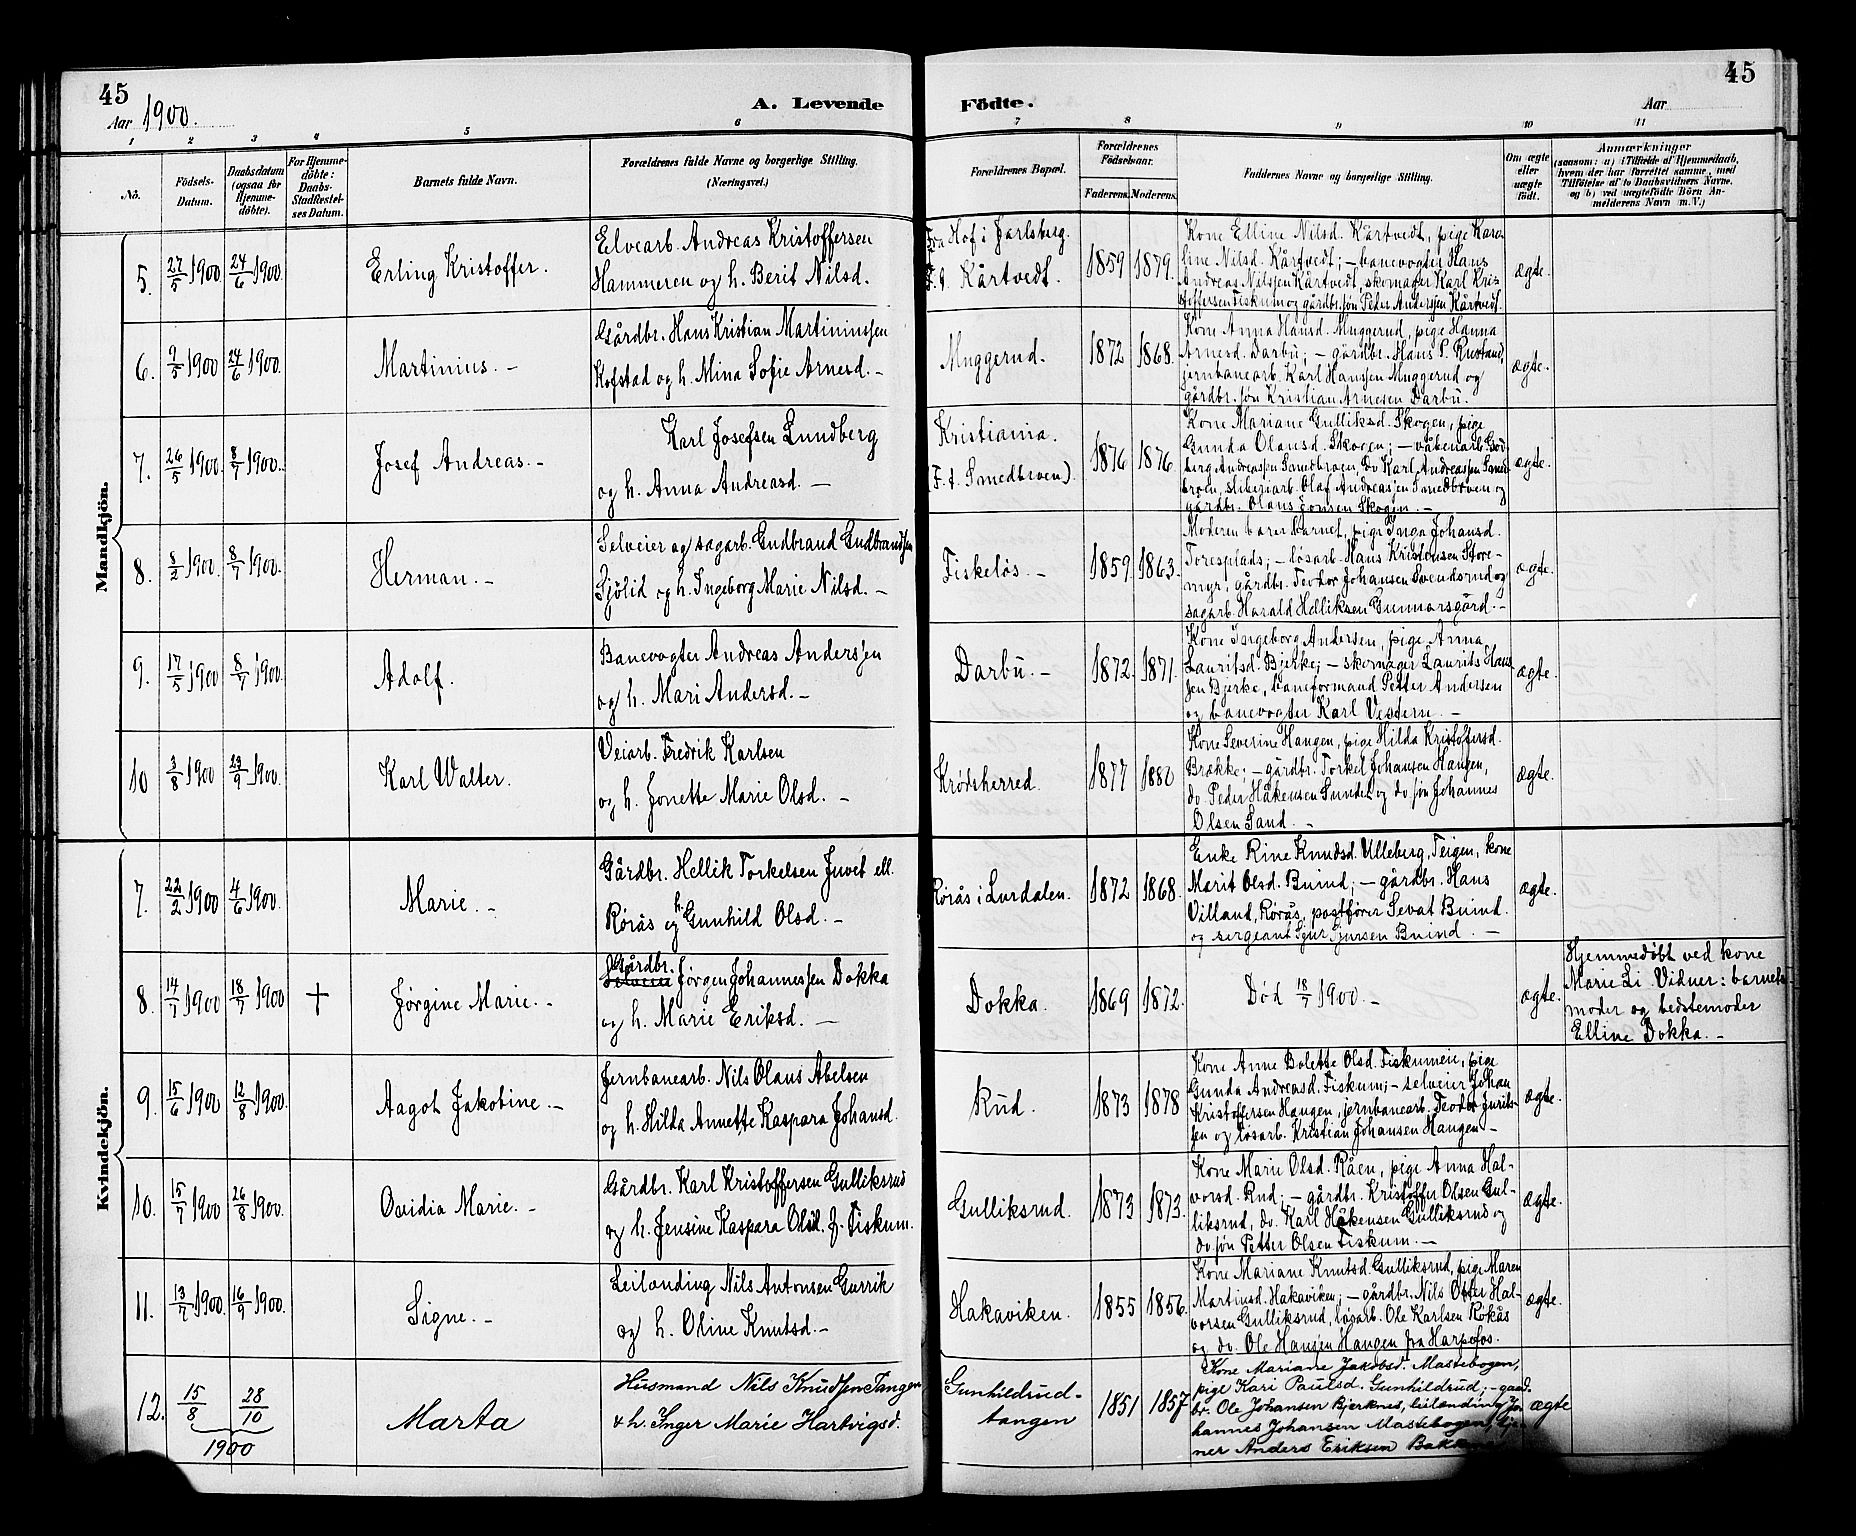 45
45
Aar 1900.
A. Levende Födte.
Aar
1 2 3 4 5 6 7 8 9 10 11
No.
Födsels-
Datum.
Daabsdatum
(ogsaa for
Hjemme-
döbte).
For Hjemme-
döbte:
Daabs-
Stadfæstel-
ses Datum.
Barnets fulde Navn.
Forældrenes fulde Navne og borgerlige Stilling.
(Næringsvei.)
Forældrenes Bopæl.
Forældrenes
Födselsaar.
Faderens. Moderens.
Faddernes Navne og borgerlige Stilling.
Om ægte
eller
uægte
födt.
Anmærkninger
(saasom: a) i Tilfælde af Hjemmedaab,
hvem der har forrettet samme, med
Tilföielse af to Daabsvidners Navne,
og b) ved uægtefödte Börn An-
melderens Navn (m. V.)
Mandkjön.
5. 27/5 1900 24/6 1900. Erling Kristoffer.
Elvearb. Andreas Kristoffersen
Hammeren og h. Berit Nilsd.
Fra Hof i Jarlsberg.
F. t. Kårtvedt.
1859 1879.
Kone Elline Nilsd. Kårtvedt, pige Karo-
line Nilsd. Kårtvedt; – banevogter Hans
Andreas Nilssen Kårtvedt, skomager Karl Kris-
toffersen Fiskum og gårdbr. søn Peder Anderssen Kårtvedt.
ægte.
6. 9/5 1900 24/6 1900. Martinius. –
Gårdbr. Hans Kristian Martininssen
Kofstad og h. Mina Sofie Arnesd. –
Muggerud.
1872 1868.
Kone Anna Hansd. Muggerud, pige Hanna
Arnesd. Darbu; – gårdbr. Hans P. Rustand,
jernbanearb. Karl Hanssen Muggerud og
gårdbr. søn Kristian Arnesen Darbu.
ægte.
7. 26/5 1900. 8/7 1900. Josef Andreas. –
Karl Josefsen Lundberg
og h. Anna Andreasd. –
Kristiania.
(F. t. Smedbroen).
1876 1876.
Kone Mariane Gulliksd. Skogen, pige
Gunda Olausd. Skogen; – våbenarb.
Andreassen Smedbroen, do Karl Andreassen Smed-
broen, sliberiarb. Olaf Andreassen Smedbroen og
gårdbr. Olaus Jonsen Skogen. –
ægte.
8. 8/2 1900. 8/7 1900. Herman. –
Selveier og sagarb. Gudbrand Gudbrandsen
og h. Ingeborg Marie Nilsd. –
Fiskeløs. –
1859 1863.
Moderen barer barnet, pige Inga Johansd.
Toresplads; – løsarb. Hans Kristensen Store-
myr, gårdbr. Teodor Johansen Svendsrud og
sagarb. Harald Helliksen Gunnarsgård. –
ægte.
9. 17/5 1900 8/7 1900. Adolf.
Banevogter Andreas Anderssen
og h. Mari Andersd. –
Darbu. –
1872. 1871.
Kone Ingeborg Andersen, pige Anna
Lauritsd. Bjerke; – skomager Laurits Hans-
sen Bjerke, baneformand Petter Andersen
og banevogter Karl Vestern. –
ægte.
10 3/8 1900 23/9 1900. Karl Walter.
Veiarb. Fredrik Karlsen
og h. Jonette Marie Olsd. –
Krødsherred.
1877 1880
Kone Severine Haugen, pige Hilda Kristoffersd.
Brække; – gårdbr. Torkel Johansen Haugen,
do. Peder Håkensen Sundet og do. søn Johannes
Olsen Sand. –
ægte.
Kvindekjön.
7. 22/2 1900 4/6 1900. Marie. –
Gårdbr. Hellik Torkelsen Juvet ell.
Rørås og h. Gunhild Olsd. –
Rørås i Lurdalen.
1872 1868.
Enke Rine Knudsd. Ulleberg, Teigen, kone
Marit Olsd. Buind; – gårdbr. Hans
Villand, Rørås, postfører Sevat Buind
og sergeant Sjur Sjursen Buind. –
ægte.
8. 14/7 1900 18/7 1900 † Jørgine Marie. –
Gårdbr.
Selveier Jørgen Johannessen Dokka
og h. Marie Eriksd. –
Dokka.
1869 1872.
Død 18/7 1900. –
ægte.
Hjemmedøbt ved kone
Marie Li. Vidner: barnets
moder og bedstemoder
Elline Dokka. –
9. 15/6 1900 12/8 1900. Aagot Jakobine. –
Jernbanearb. Nils Olaus Abelsen
og h. Hilda Annette Kaspara Johansd.
Rud.
1873 1878
Kone Anne Bolette Olsd. Fiskumeii, pige
Gunda Andreasd. Fiskum; – selveier Johan
Kristoffersen Haugen, jernbanearb. Teodor Jurils-
sen og løsarb. Kristian Johansen Haugen –
ægte.
10. 15/7 1900 26/8 1900. Ovidia Marie. –
Gårdbr. Karl Kristoffersen Gulliksrud
og h. Jensine Kaspara Olsd. f. Fiskum.
Gulliksrud.
1873 1873.
Kone Marie Olsd. Råen, pige Anna Hal-
vorsd. Rud; – gårdbr. Kristoffer Olsen Gul-
liksrud, do. Karl Håkensen Gulliksrud og
do. søn Petter Olsen Fiskum. –
ægte.
11. 13/7 1900. 16/9 1900. Signe. –
Leilending Nils Antonsen Gurrik
og h. Oline Knutsd. –
Hakaviken.
1855 1856.
Kone Mariane Knutsd. Gulliksrud, pige Maren
Martinsd. Hakaviken; – gårdbr. Nils Otter Hal-
vorsen Gulliksrud, løsarb. Ole Karlsen Rokås
og do. Ole Hansen Haugen fra Harpefos.
ægte.
12. 15/8 28/10 1900 Marta
Husmand Nils Knudsen Tangen
& h. Inger Marie Hartvigsd.
Gunhildrud-
tangen
1851 1857
Kone Mariane Jakobsd. Mastebogen,
pige Kari Paulsd. Gunhildrud; – gaard-
br. Ole Johansen Bjerknes, leilending Jo-
hannes Johansen Mastebogen, tje-
ner Anders Eriksen
ægte